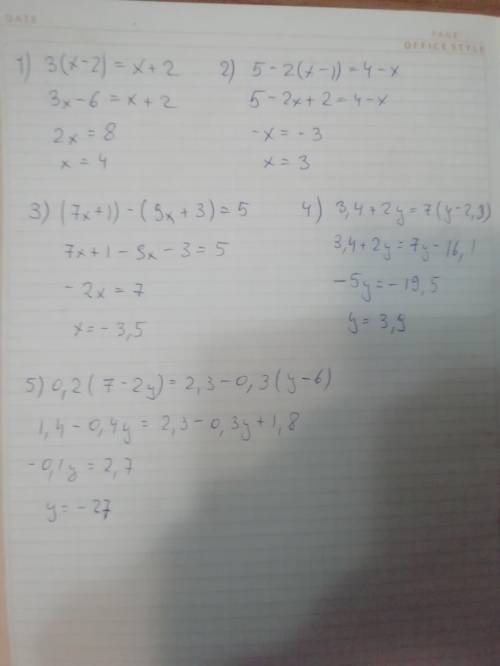 DATE
PAGE
OFFICE STYLE
1) 3(x-2) = x+2
3x-6 = x+2
2x = 8
x = 4
2) 5-2(x-1) = 4-x
5-2x+2 = 4-x
-x = -3
x = 3
3) (7x+1) - (9x+3) = 5
7x+1-9x-3 = 5
-2x = 7
x = -3,5
4) 3,4+2y = 7(y-2,3)
3,4+2y = 7y-16,1
-5y = -19,5
y = 3,9
5) 0,2(7-2y) = 2,3-0,3(y-6)
1,4-0,4y = 2,3-0,3y+1,8
-0,1y = 2,7
y = -27